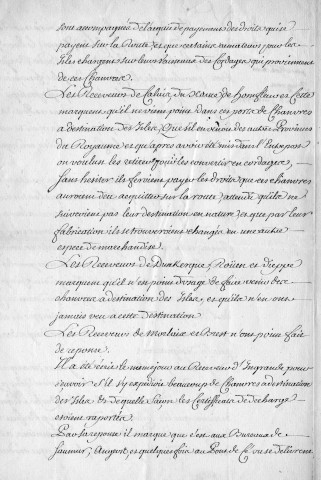 sont accompagnés de l'acquit de payement des droits qui se
payent sur la Route, et que certains armateurs pour les
Isles chargent sur leurs Vaisseaux des Cordages qui proviennent
de ces Chanvres.
Les Receveurs de Calais, du havre, de honfleur et Cette
marquent qu'il ne vient point dans ces ports de Chanvres
a destination des Isles, que s'il en venoit des autres Provinces
du Royaume et qu'après avoir été mis dans l'Entrepost
on voulut les retirer pour les convertir en cordages,
Sans hesiter ils feroient payer les droits que ces chanvres
auroient dû acquitter sur la route, attendu qu'ils ne
suivroient pas leur destination en nature, et que par leur
fabrication ils se trouveroient changés en une autre
espece de marchandise.
Les Receveurs de Dunkerque, Roüen et Dieppe
marquent qu'il n'est point d'usage de faire venir des
chanvres a destination des Isles, et qu'ils n'en ont
jamais veu a cette destination
Les Receveurs de et Brest n'ont point fait
de reponse.
Il a été écrit le meme jour au Receveur d'Ingrande pour
sçavoir s'il s'y expedioit beaucoup de Chanvres a destination
des Isles et de quelle façon les Certificats de decharge
etoient raportés.
Par sa reponse il marque que c'est aux Bureaux de
Saumur, Angers, et quelques fois au Pont de Cé où se delivrent